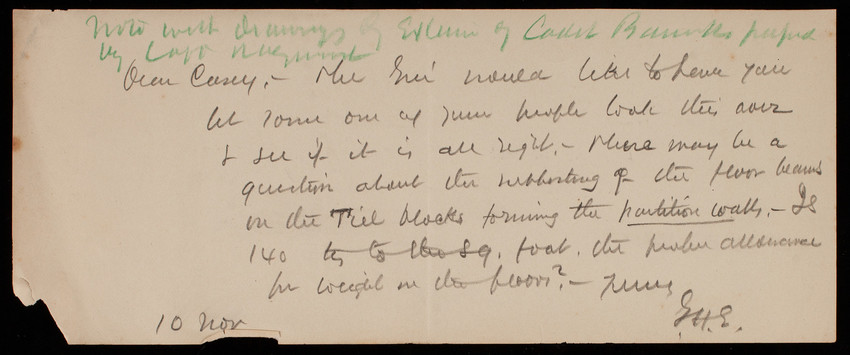 Note with drawings of Exterior of Cadet Barracks prepared
by Capt
Dear Casey, - The Gen'l would like to have you
let some one of your people look this over
& see if it is all right. - There may be a
question about the of the floor beams
on the Tile blocks forming the partition walls. - Is
140 lbs to the sq. foot. the proper allowance
for weight on the floors? - Yours
G.H.E.
10 Nov